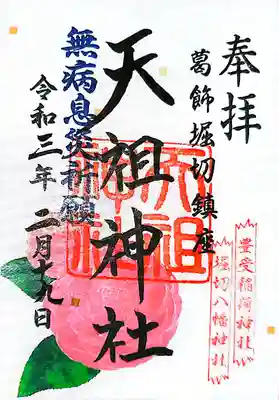 奉拝
葛飾堀切鎮座
豊受稲荷神社
堀切八幡神社
天祖神社
天祖神社
無病息災祈願
令和三年 二月十九日